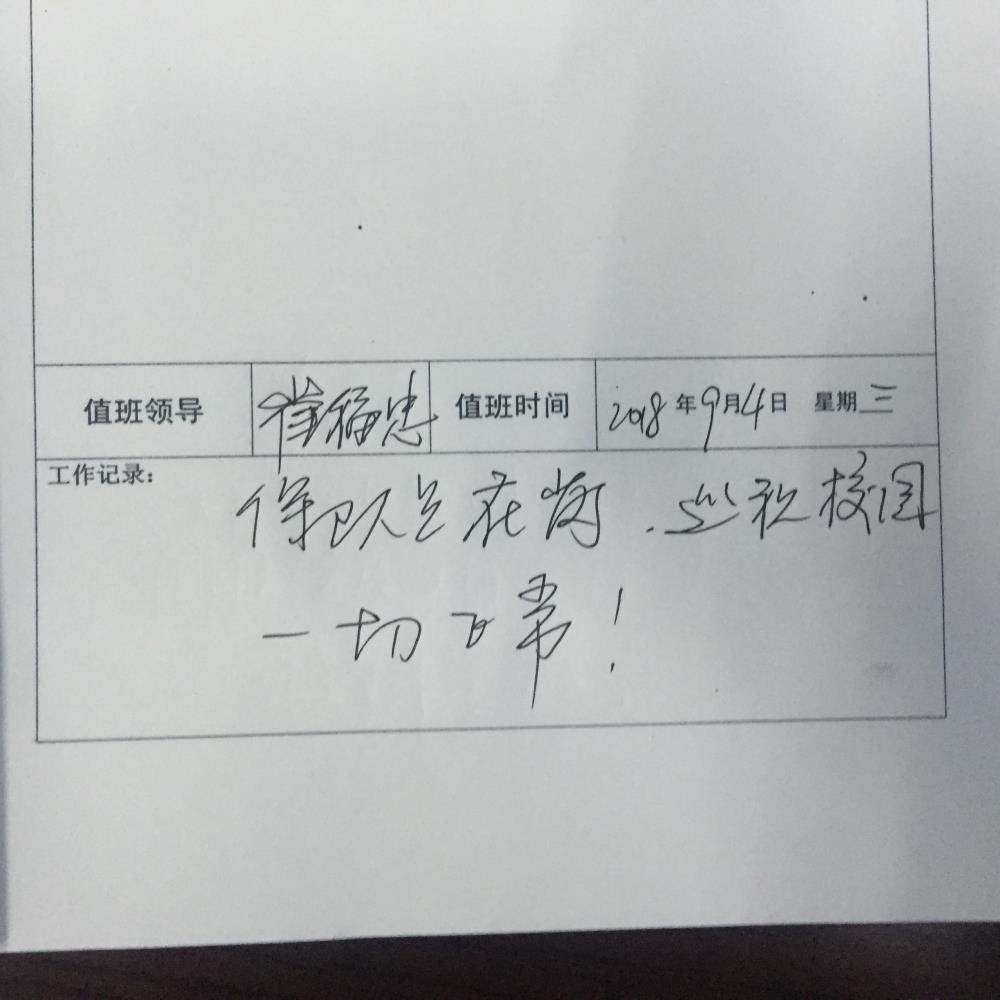 值班领导 崔福忠 值班时间 2018年9月4日 星期三
工作记录:
保卫人员在岗.巡视校园
一切正常!